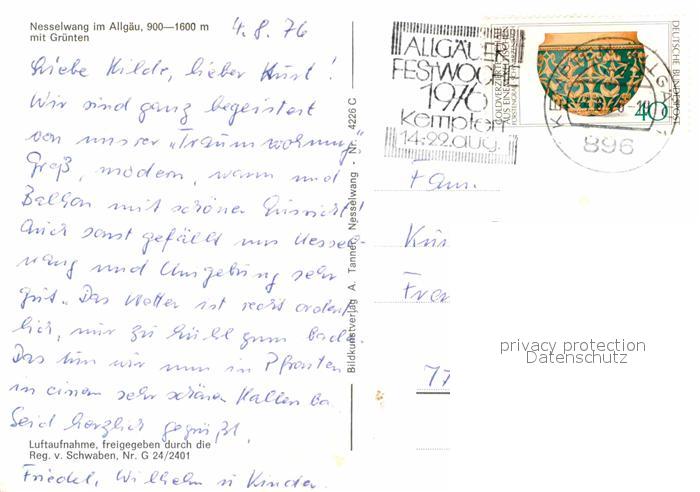 Nesselwang im Allgäu, 900—1600 m
mit Grünten
4.8.76
Liebe Hilde, lieber Kurt!
Wir sind ganz begeistert
von unserer „Traumwohnung"
Groß, modern, warm und
Balkon mit schöner Aussicht!
Auch sonst gefällt uns Nessel-
wang und Umgebung sehr
gut. Das Wetter ist recht ordent-
lich, nur zu kühl zum Baden.
Das tun wir nun in Pfronten
in einem sehr schönen Hallenba
Seid herzlich gegrüßt,
Luftaufnahme, freigegeben durch die
Reg. v. Schwaben, Nr. G 24/2401
Friedel, Wilhelm u Kinder.
Bildkunstverlag A. Tanner, Nesselwang - Nr. 4226 C
ALLGÄUER
FESTWOCHE
1976
Kempten
14.-22. aug.
DEUTSCHE BUNDESPOST
40
896
Fam.
Kur
Fra
77
privacy protection
Datenschutz